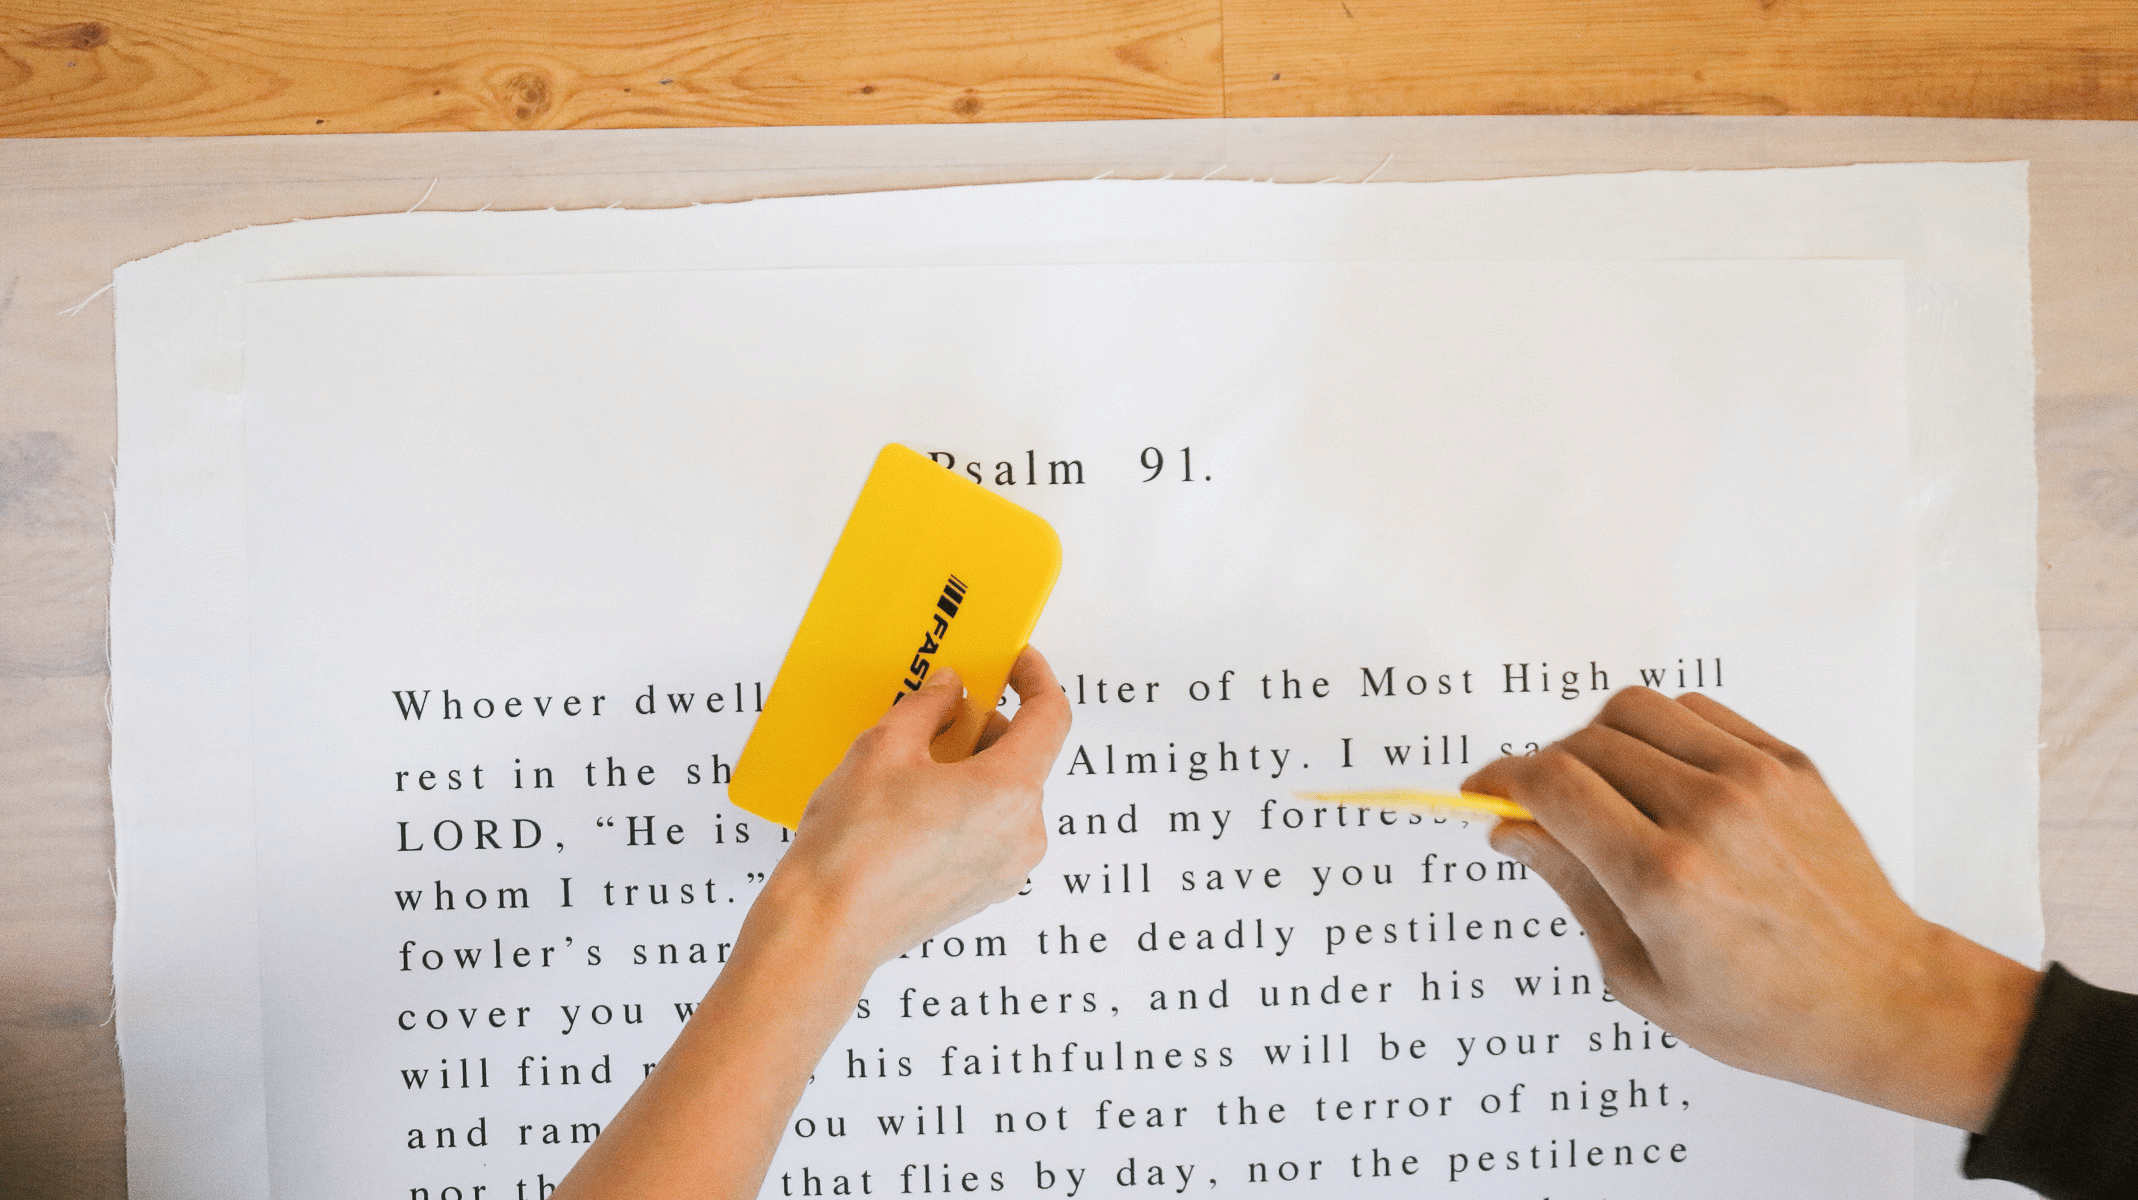 Psalm 91.
Whoever dwell lter of the Most High will
rest in the sh Almighty. I will sa
LORD, “He is and my fortress,
whom I trust.” will save you from
fowler’s snar from the deadly pestilence.
cover you w s feathers, and under his wing
will find r , his faithfulness will be your shie
and ram ou will not fear the terror of night,
nor th that flies by day, nor the pestilence
FAST